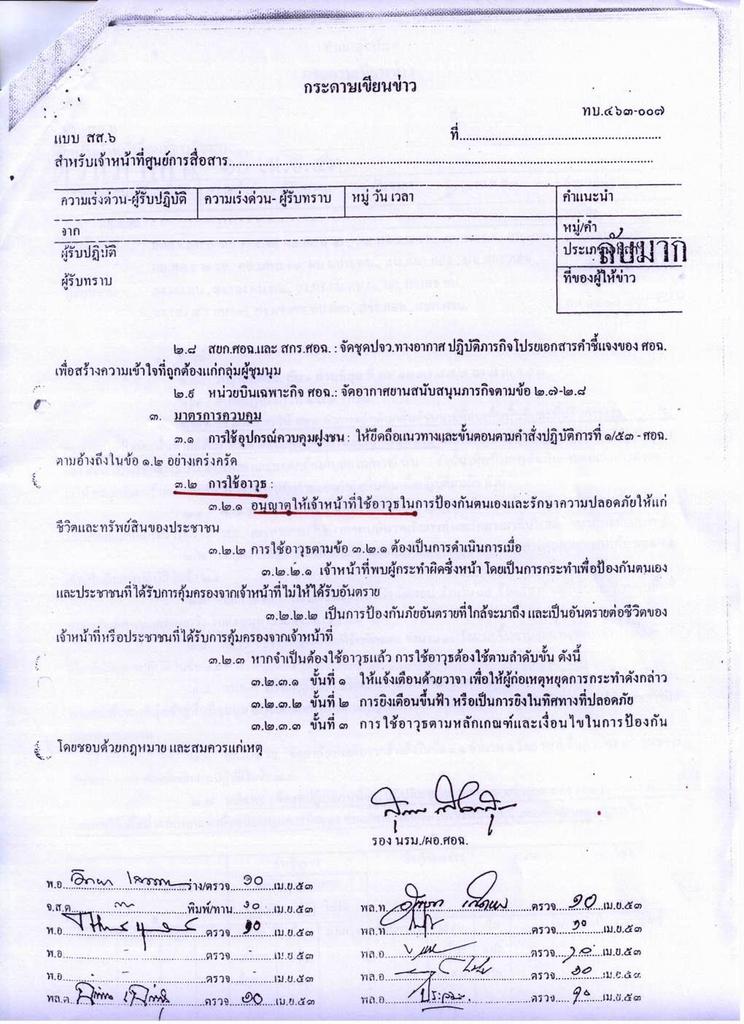 กระดาษเขียนข่าว
ทบ.๔๖๓-๐๐๗
แบบ สส.๖ ที่
สำหรับเจ้าหน้าที่ศูนย์การสื่อสาร
ความเร่งด่วน-ผู้รับปฏิบัติ ความเร่งด่วน- ผู้รับทราบ หมู่ วัน เวลา คำแนะนำ
จาก หมู่/คำ
ผู้รับปฏิบัติ ลับมาก
ผู้รับทราบ ที่ของผู้ให้ข่าว
๒.๘ สยก.ศอฉ.และ สกร.ศอฉ. : จัดชุดปจว.ทางอากาศ ปฏิบัติภารกิจโปรยเอกสารคำชี้แจงของ ศอฉ.
เพื่อสร้างความเข้าใจที่ถูกต้องแก่กลุ่มผู้ชุมนุม
๒.๙ หน่วยบินเฉพาะกิจ ศอฉ.: จัดอากาศยานสนับสนุนภารกิจตามข้อ ๒.๗-๒.๘
๓. มาตรการควบคุม
๓.๑ การใช้อุปกรณ์ควบคุมฝูงชน : ให้ยึดถือแนวทางและขั้นตอนตามคำสั่งปฏิบัติการที่ ๑/๕๓ - ศอฉ.
ตามอ้างถึงในข้อ ๑.๒ อย่างเคร่งครัด
๓.๒ การใช้อาวุธ :
๓.๒.๑ อนุญาตให้เจ้าหน้าที่ใช้อาวุธในการป้องกันตนเองและรักษาความปลอดภัยให้แก่
ชีวิตและทรัพย์สินของประชาชน
๓.๒.๒ การใช้อาวุธตามข้อ ๓.๒.๑ ต้องเป็นการดำเนินการเมื่อ
๓.๒.๒.๑ เจ้าหน้าที่พบผู้กระทำผิดซึ่งหน้า โดยเป็นการกระทำเพื่อป้องกันตนเอง
และประชาชนที่ได้รับการคุ้มครองจากเจ้าหน้าที่ไม่ให้ได้รับอันตราย
๓.๒.๒.๒ เป็นการป้องกันภัยอันตรายที่ใกล้จะมาถึง และเป็นอันตรายต่อชีวิตของ
เจ้าหน้าที่หรือประชาชนที่ได้รับการคุ้มครองจากเจ้าหน้าที่
๓.๒.๓ หากจำเป็นต้องใช้อาวุธแล้ว การใช้อาวุธต้องใช้ตามลำดับขั้น ดังนี้
๓.๒.๓.๑ ขั้นที่ ๑ ให้แจ้งเตือนด้วยวาจา เพื่อให้ผู้ก่อเหตุหยุดการกระทำดังกล่าว
๓.๒.๓.๒ ขั้นที่ ๒ การยิงเตือนขึ้นฟ้า หรือเป็นการยิงในทิศทางที่ปลอดภัย
๓.๒.๓.๓ ขั้นที่ ๓ การใช้อาวุธตามหลักเกณฑ์และเงื่อนไขในการป้องกัน
โดยชอบด้วยกฎหมาย และสมควรแก่เหตุ
รอง นรม./ผอ.ศอฉ.
พ.อ. ร่าง/ตรวจ ๑๐ เม.ย.๕๓
จ.ส.ต. พิมพ์/ทาน ๑๐ เม.ย.๕๓ พล.ท. ตรวจ ๑๐ เม.ย.๕๓
พ.อ. ตรวจ ๑๐ เม.ย.๕๓ พล.ท. ตรวจ ๑๐ เม.ย.๕๓
พ.อ. - ตรวจ - เม.ย.๕๓ พล.อ. ตรวจ ๑๐ เม.ย.๕๓
พ.อ. - ตรวจ - เม.ย.๕๓ พล.อ. ตรวจ ๑๐ เม.ย.๕๓
พล.ต. ตรวจ ๑๐ เม.ย.๕๓ พล.อ. ตรวจ ๑๐ เม.ย.๕๓